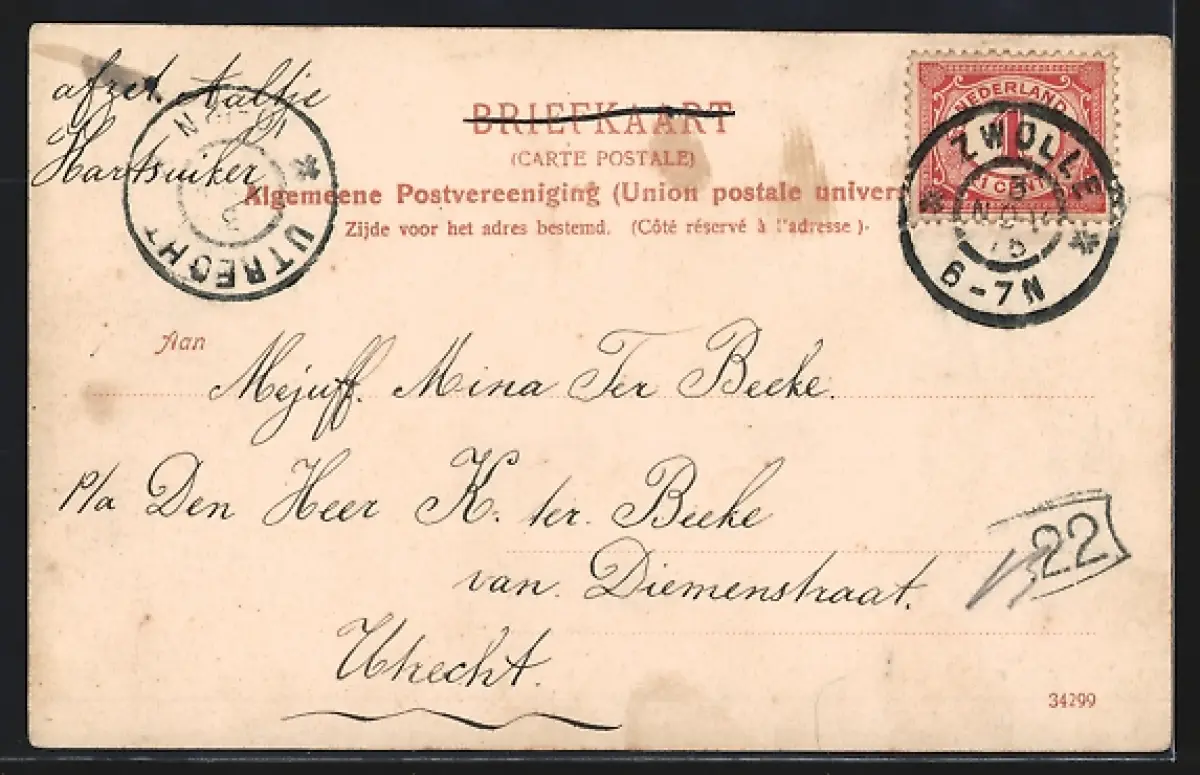 afzet. Aaltje
Hartsuiker
BRIEFKAART
(CARTE POSTALE)
Algemeene Postvereeniging (Union postale univers
Zijde voor het adres bestemd. (Côté réservé à l'adresse)
NEDERLAND
1
1 CENT
ZWOLLE
6-7N
UTRECHT
Aan
Mejuff. Mina Ter Beeke.
p/a Den Heer K. ter. Beeke
van Diemenstraat.
Utrecht.
22
34299